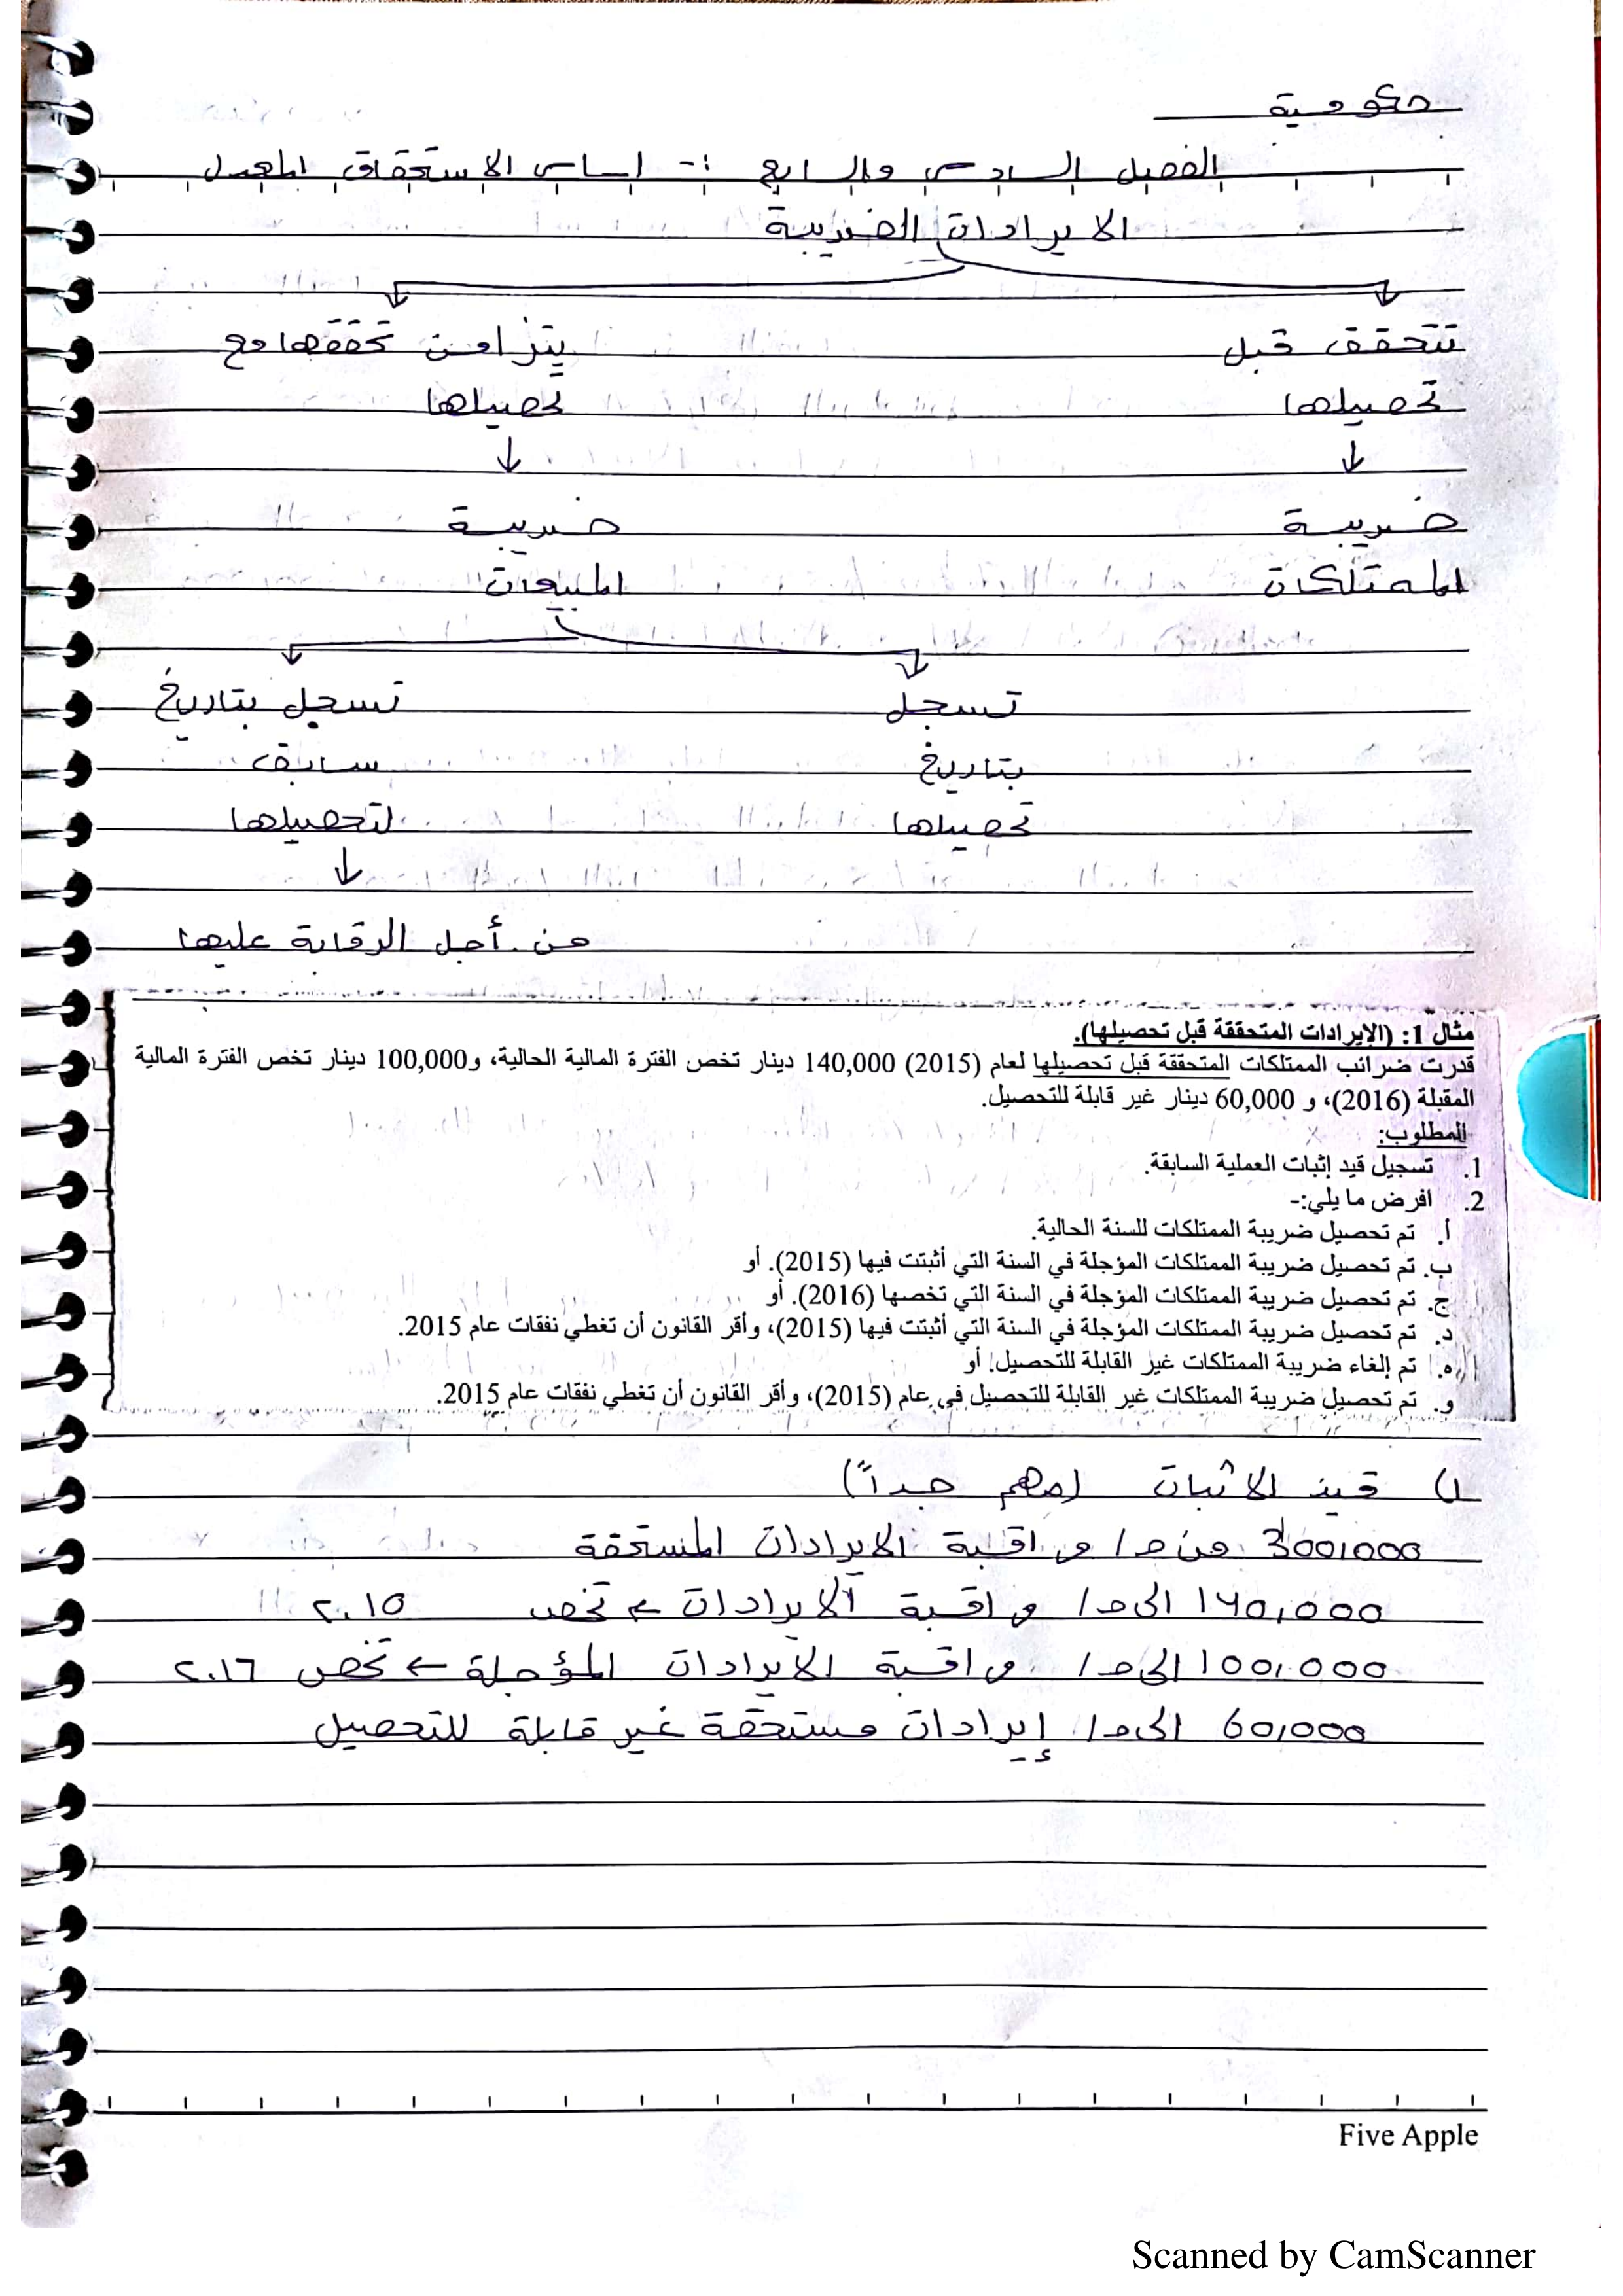 حكومية
الفصل السادس والرابع :- اساس الاستحقاق المعدل
الايرادات الضريبة
تتحقق قبل يتزامن تحققها مع
تحصيلها تحصيلها
↓ ↓
ضريبة ضريبة
الممتلكات المبيعات
تسجل تسجل بتاريخ
بتاريخ سابق
تحصيلها لتحصيلها
↓
من أجل الرقابة عليها
مثال 1: (الإيرادات المتحققة قبل تحصيلها).
قدرت ضرائب الممتلكات المتحققة قبل تحصيلها لعام (2015) 140,000 دينار تخص الفترة المالية الحالية، و100,000 دينار تخص الفترة المالية
المقبلة (2016)، و 60,000 دينار غير قابلة للتحصيل.
المطلوب:
1. تسجيل قيد إثبات العملية السابقة.
2. افرض ما يلي:-
أ. تم تحصيل ضريبة الممتلكات للسنة الحالية.
ب. تم تحصيل ضريبة الممتلكات المؤجلة في السنة التي أثبتت فيها (2015). أو
ج. تم تحصيل ضريبة الممتلكات المؤجلة في السنة التي تخصها (2016). أو
د. تم تحصيل ضريبة الممتلكات المؤجلة في السنة التي أثبتت فيها (2015)، وأقر القانون أن تغطي نفقات عام 2015.
ه. تم إلغاء ضريبة الممتلكات غير القابلة للتحصيل. أو
و. تم تحصيل ضريبة الممتلكات غير القابلة للتحصيل في عام (2015)، وأقر القانون أن تغطي نفقات عام 2015.
1) قيد الاثبات (مهم جداً)
300,000 من ح/ مراقبة الايرادات المستحقة
140,000 الى ح/ مراقبة الايرادات ← تخص ٢٠١٥
100,000 الى ح/ مراقبة الايرادات المؤجلة ← تخص ٢٠١٦
60,000 الى ح/ إيرادات مستحقة غير قابلة للتحصيل
Five Apple
Scanned by CamScanner